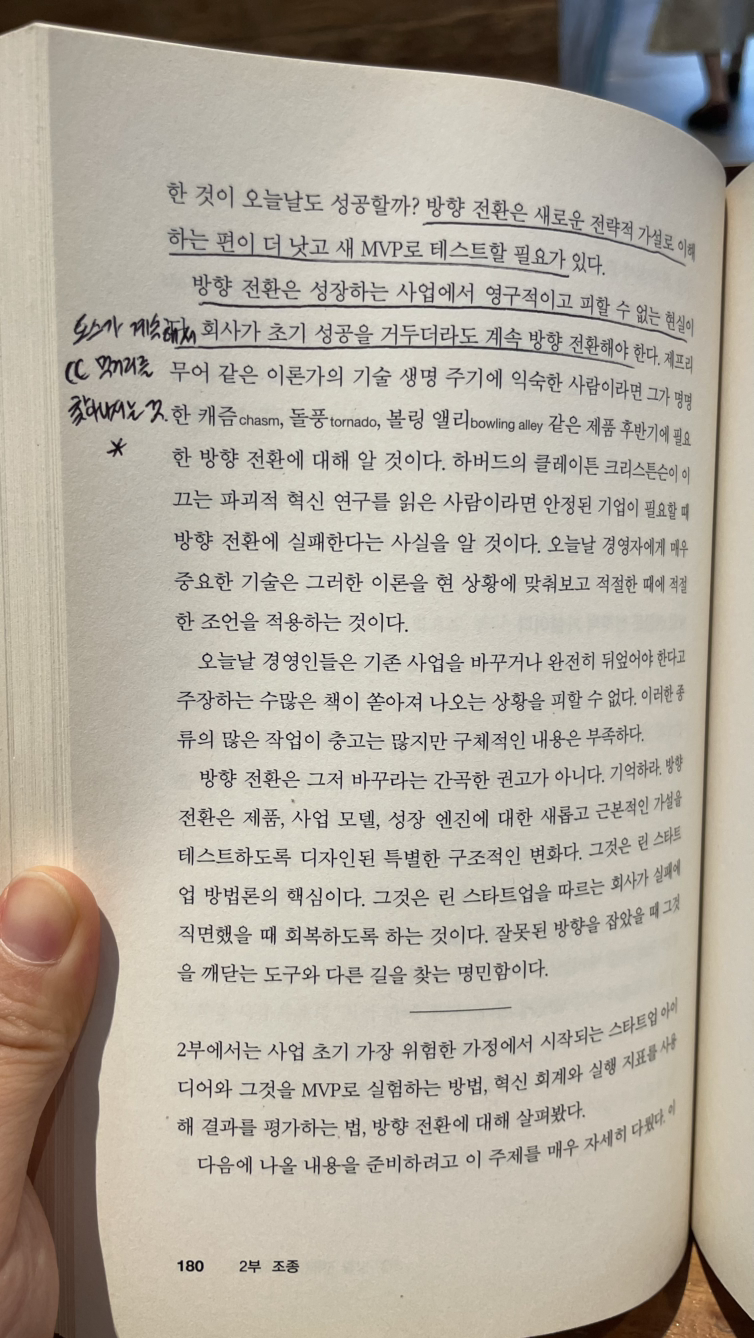 한 것이 오늘날도 성공할까? 방향 전환은 새로운 전략적 가설로 이해
하는 편이 더 낫고 새 MVP로 테스트할 필요가 있다.
방향 전환은 성장하는 사업에서 영구적이고 피할 수 없는 현실이
회사가 초기 성공을 거두더라도 계속 방향 전환해야 한다. 제프리
무어 같은 이론가의 기술 생명 주기에 익숙한 사람이라면 그가 명명
한 캐즘chasm, 돌풍tornado, 볼링 앨리bowling alley 같은 제품 후반기에 필요
한 방향 전환에 대해 알 것이다. 하버드의 클레이튼 크리스튼슨이 이
끄는 파괴적 혁신 연구를 읽은 사람이라면 안정된 기업이 필요할 때
방향 전환에 실패한다는 사실을 알 것이다. 오늘날 경영자에게 매우
중요한 기술은 그러한 이론을 현 상황에 맞춰보고 적절한 때에 적절
한 조언을 적용하는 것이다.
오늘날 경영인들은 기존 사업을 바꾸거나 완전히 뒤엎어야 한다고
주장하는 수많은 책이 쏟아져 나오는 상황을 피할 수 없다. 이러한 종
류의 많은 작업이 충고는 많지만 구체적인 내용은 부족하다.
방향 전환은 그저 바꾸라는 간곡한 권고가 아니다. 기억하라. 방향
전환은 제품, 사업 모델, 성장 엔진에 대한 새롭고 근본적인 가설을
테스트하도록 디자인된 특별한 구조적인 변화다. 그것은 린 스타트
업 방법론의 핵심이다. 그것은 린 스타트업을 따르는 회사가 실패에
직면했을 때 회복하도록 하는 것이다. 잘못된 방향을 잡았을 때 그것
을 깨닫는 도구와 다른 길을 찾는 명민함이다.
2부에서는 사업 초기 가장 위험한 가정에서 시작되는 스타트업 아이
디어와 그것을 MVP로 실험하는 방법, 혁신 회계와 실행 지표를 사용
해 결과를 평가하는 법, 방향 전환에 대해 살펴봤다.
다음에 나올 내용을 준비하려고 이 주제를 매우 자세히 다뤘다. 이
180 2부 조종
토스가 계속
먹거리를